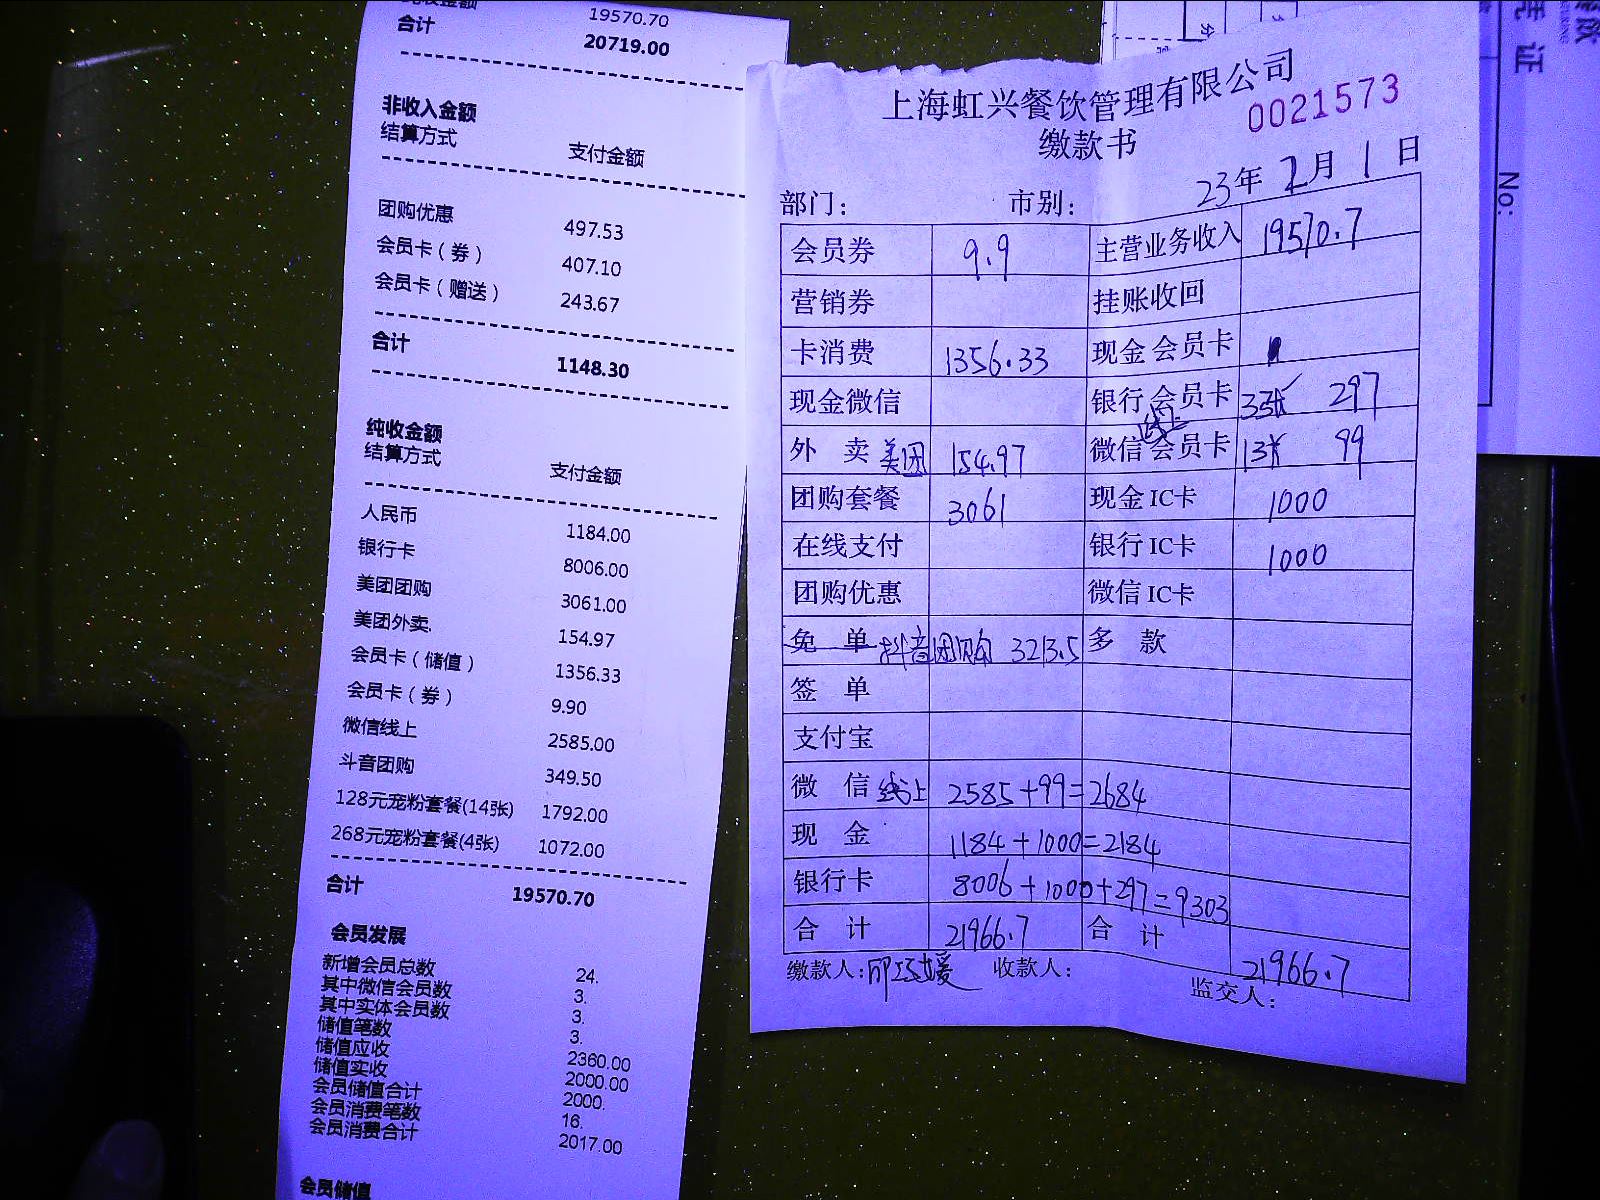 19570.70
合计 20719.00
非收入金额
结算方式 支付金额
团购优惠 497.53
会员卡（券） 407.10
会员卡（赠送） 243.67
合计 1148.30
纯收金额
结算方式 支付金额
人民币 1184.00
银行卡 8006.00
美团团购 3061.00
美团外卖. 154.97
会员卡（储值） 1356.33
会员卡（券） 9.90
微信线上 2585.00
斗音团购 349.50
128元宠粉套餐(14张) 1792.00
268元宠粉套餐(4张) 1072.00
合计 19570.70
会员发展
新增会员总数 24.
其中微信会员数 3.
其中实体会员数 3.
储值笔数 3.
储值应收 2360.00
储值实收 2000.00
会员储值合计 2000.
会员消费笔数 16.
会员消费合计 2017.00
会员储值
上海虹兴餐饮管理有限公司
0021573
缴款书
23年 2月 1日
部门： 市别：
会员券 9.9 主营业务收入 19570.7
营销券 挂账收回
卡消费 1356.33 现金会员卡
现金微信 银行会员卡 3张 297
外卖 美团 154.97 微信线上会员卡 1张 99
团购套餐 3061 现金IC卡 1000
在线支付 银行IC卡 1000
团购优惠 微信IC卡
免单 抖音团购 3213.5 多款
签单
支付宝
微信 线上 2585+99=2684
现金 1184+1000=2184
银行卡 8006+1000+297=9303
合计 21966.7 合计 21966.7
缴款人： 收款人： 监交人：
凭证
No: